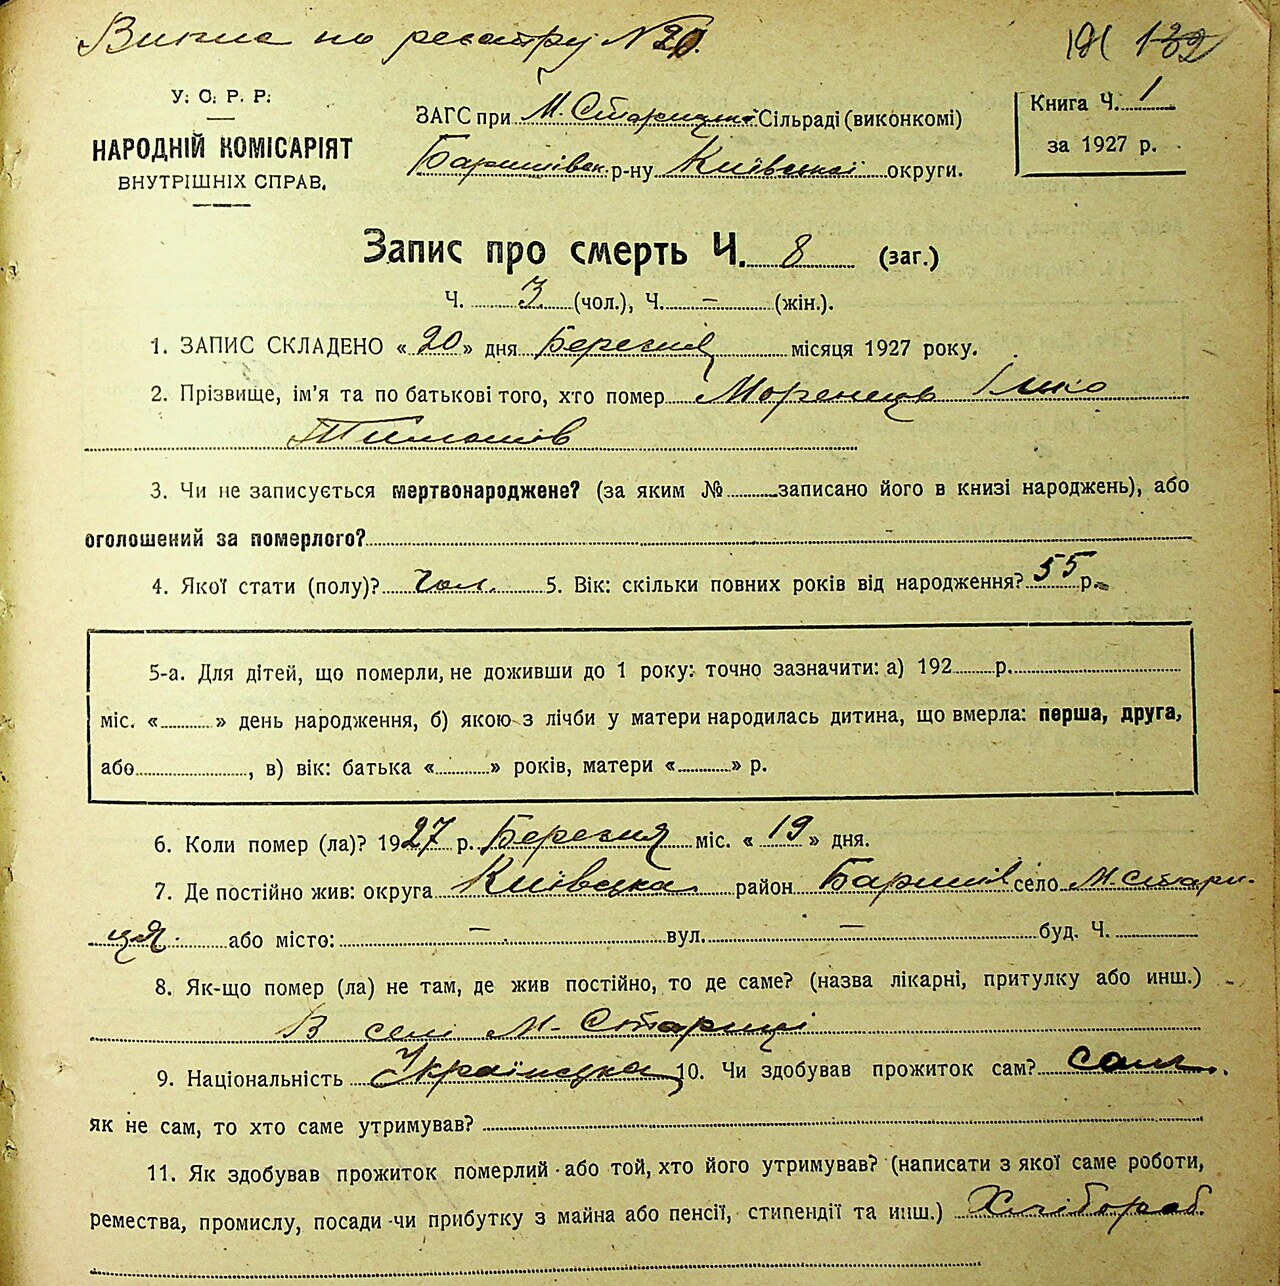 по реєстру № 20.
191 132
У. С. Р. Р.
НАРОДНІЙ КОМІСАРІЯТ
ВНУТРІШНІХ СПРАВ.
ЗАГС при М. Старицькій Сільраді (виконкомі)
Баришівськ. р-ну Київської округи.
Книга Ч. 1
за 1927 р.
Запис про смерть Ч. 8 (заг.)
Ч. 3 (чол.), Ч. – (жін.).
1. ЗАПИС СКЛАДЕНО « 20 » дня Березня місяця 1927 року.
2. Прізвище, ім'я та по батькові того, хто помер Моренець Ілько
Тимошів
3. Чи не записується мертвонароджене? (за яким № записано його в книзі народжень), або
оголошений за померлого?
4. Якої стати (полу)? чол. 5. Вік: скільки повних років від народження? 55 р.
5-а. Для дітей, що померли, не доживши до 1 року: точно зазначити: а) 192 р.
міс. « » день народження, б) якою з лічби у матери народилась дитина, що вмерла: перша, друга,
або , в) вік: батька « » років, матери « » р.
6. Коли помер (ла)? 1927 р. Березня міс. « 19 » дня.
7. Де постійно жив: округа Київська район Баришів село М-Стари-
ця. або місто: – вул. – буд. Ч.
8. Як-що помер (ла) не там, де жив постійно, то де саме? (назва лікарні, притулку або инш.)
В селі М-Стариці
9. Національність Українська 10. Чи здобував прожиток сам? сам.
як не сам, то хто саме утримував?
11. Як здобував прожиток померлий або той, хто його утримував? (написати з якої саме роботи,
ремества, промислу, посади чи прибутку з майна або пенсії, стипендії та инш.) Хлібороб.